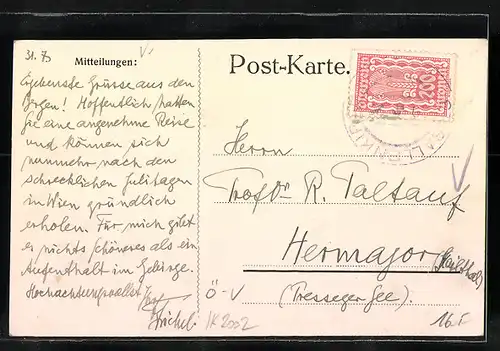 31. 7.
Mitteilungen:
Ergebenste Grüsse aus den
Bergen! Hoffentlich hatten
Sie eine angenehme Reise
und können sich
nunmehr nach den
schrecklichen Julitagen
in Wien gründlich
erholen. Für mich gibt
es nichts schöneres als ein
Aufenthalt im Gebirge.
Hochachtungsvollst
Post-Karte.
200
Herrn
Prof Dr R. Paltauf
Hermagor (Gailthal)
(Presseger See).
Ö-V
IK2002
16.-